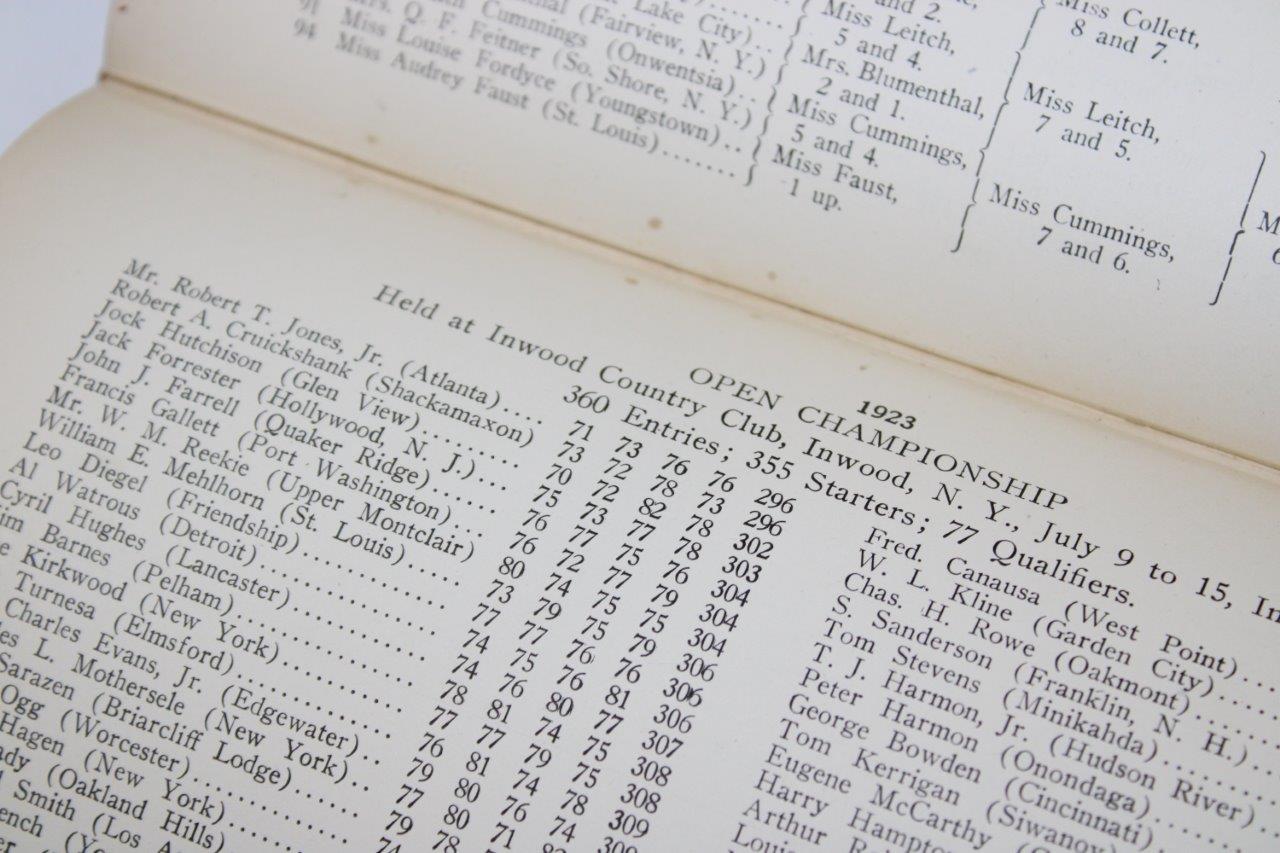 Lake City)..
(Fairview, N. Y.)
Cummings (Onwentsia)..
Mrs. Q. F. Feitner (So. Shore, N. Y.)
91 Miss Louise Fordyce (Youngstown)..
94 Miss Audrey Faust (St. Louis).......
and 2.
Miss Leitch,
5 and 4.
Mrs. Blumenthal,
2 and 1.
Miss Cummings,
5 and 4.
Miss Faust,
1 up.
Miss Collett,
8 and 7.
Miss Leitch,
7 and 5.
Miss Cummings,
7 and 6.
1923
OPEN CHAMPIONSHIP
Held at Inwood Country Club, Inwood, N. Y., July 9 to 15, In
360 Entries; 355 Starters; 77 Qualifiers.
Mr. Robert T. Jones, Jr. (Atlanta).... 71 73 76 76 296
Robert A. Cruickshank (Shackamaxon) 73 72 78 73 296
Jock Hutchison (Glen View)......... 70 72 82 78 302
Jack Forrester (Hollywood, N. J.)... 75 73 77 78 303
John J. Farrell (Quaker Ridge)...... 76 77 75 76 304
Francis Gallett (Port Washington)... 76 72 77 79 304
Mr. W. M. Reekie (Upper Montclair) 80 74 75 75 304
William E. Mehlhorn (St. Louis)...... 73 79 75 79 306
Leo Diegel (Friendship)............. 77 77 76 76 306
Al Watrous (Detroit)................ 74 75 76 81 306
Cyril Hughes (Lancaster)............ 74 76 80 77 307
Barnes (Pelham)................ 78 81 74 75 308
Kirkwood (New York)............ 77 77 79 75 308
Turnesa (Elmsford)............. 76 81 74 78 309
Charles Evans, Jr. (Edgewater).. 79 80 76 74 309
L. Mothersele (New York)... 77 80 71
Sarazen (Briarcliff Lodge)...... 79 78
Ogg (Worcester)................
Hagen (New York)
(Oakland Hills)
Smith (Los
Fred. Canausa (West Point)....
W. L. Kline (Garden City)......
Chas. H. Rowe (Oakmont)........
S. Sanderson (Franklin, N. H.)...
Tom Stevens (Minikahda)........
T. J. Harmon, Jr. (Hudson River)..
Peter Harmon (Onondaga)........
George Bowden (Cincinnati)......
Tom Kerrigan (Siwanoy)
Eugene McCarthy
Harry
Arthur